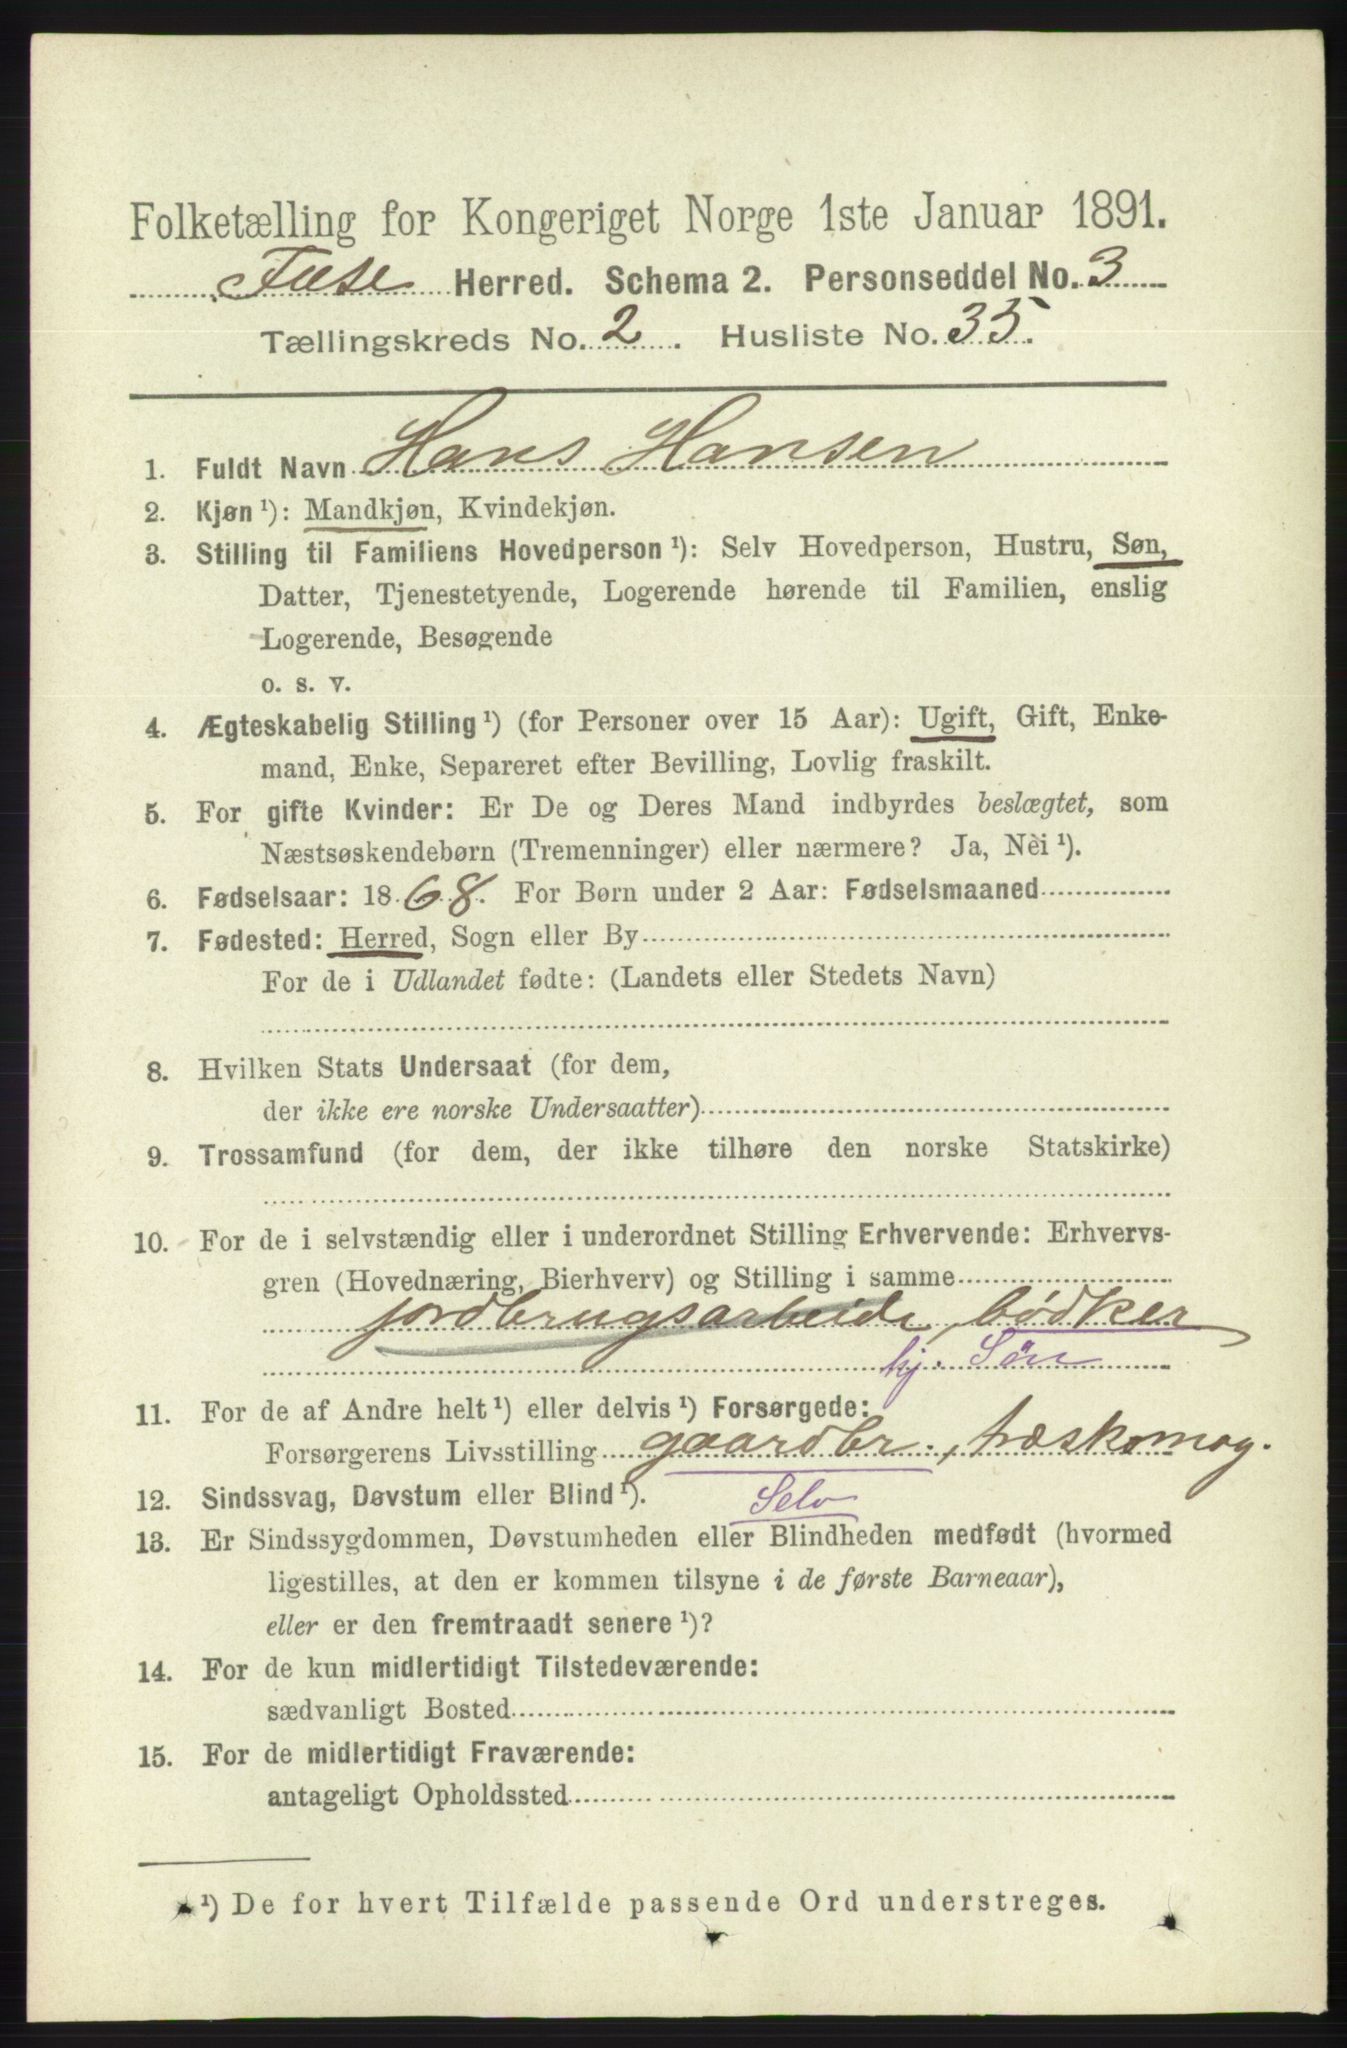 Folketælling for Kongeriget Norge 1ste Januar 1891.
Fuse Herred. Schema 2. Personseddel No. 3
Tællingskreds No. 2. Husliste No. 35.
1. Fuldt Navn Hans Hansen
2. Kjøn ¹): Mandkjøn, Kvindekjøn.
3. Stilling til Familiens Hovedperson ¹): Selv Hovedperson, Hustru, Søn,
Datter, Tjenestetyende, Logerende hørende til Familien, enslig
Logerende, Besøgende
o. s. v.
4. Ægteskabelig Stilling ¹) (for Personer over 15 Aar): Ugift, Gift, Enke-
mand, Enke, Separeret efter Bevilling, Lovlig fraskilt.
5. For gifte Kvinder: Er De og Deres Mand indbyrdes beslægtet, som
Næstsøskendebørn (Tremenninger) eller nærmere? Ja, Nèi ¹).
6. Fødselsaar: 1868. For Børn under 2 Aar: Fødselsmaaned
7. Fødested: Herred, Sogn eller By
For de i Udlandet fødte: (Landets eller Stedets Navn)
8. Hvilken Stats Undersaat (for dem,
der ikke ere norske Undersaatter)
9. Trossamfund (for dem, der ikke tilhøre den norske Statskirke)
10. For de i selvstændig eller i underordnet Stilling Erhvervende: Erhvervs-
gren (Hovednæring, Bierhverv) og Stilling i samme
jordbrugsarbeide, bödker
hj. Sön
11. For de af Andre helt ¹) eller delvis ¹) Forsørgede:
Forsørgerens Livsstilling gaardbr., træskomag.
12. Sindssvag, Døvstum eller Blind ¹). Selv
13. Er Sindssygdommen, Døvstumheden eller Blindheden medfødt (hvormed
ligestilles, at den er kommen tilsyne i de første Barneaar),
eller er den fremtraadt senere ¹)?
14. For de kun midlertidigt Tilstedeværende:
sædvanligt Bosted
15. For de midlertidigt Fraværende:
antageligt Opholdssted
¹) De for hvert Tilfælde passende Ord understreges.